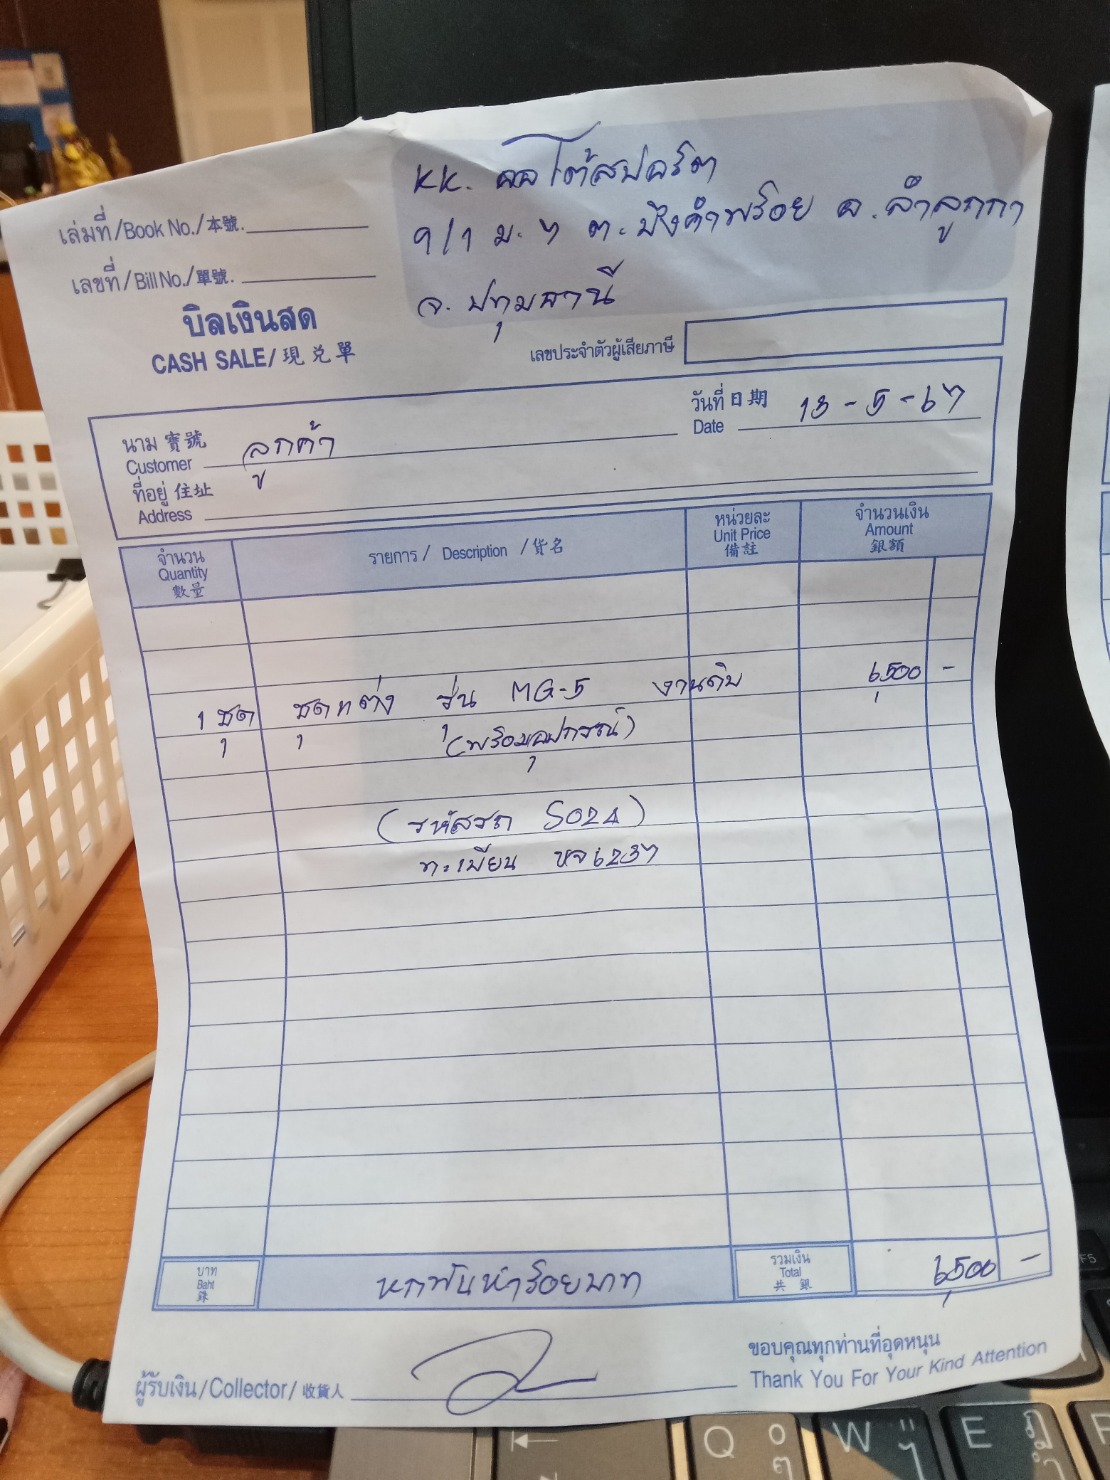 KK. ออโต้สปอร์ต
9/1 ม. 7 ต. บึงคำพร้อย อ. ลำลูกกา
จ. ปทุมธานี
เล่มที่/Book No./本號.
เลขที่/Bill No./單號.
บิลเงินสด
CASH SALE/現兑單
เลขประจำตัวผู้เสียภาษี
นาม 寶號 ลูกค้า
Customer
วันที่ 日期 13-5-67
Date
ที่อยู่ 住址
Address
จำนวน รายการ / Description / 貨名 หน่วยละ จำนวนเงิน
Quantity Unit Price Amount
數量 備註 銀額
1 ชุด ชุดแต่ง รุ่น MG-5 งานดิบ 6,500 -
(พร้อมอุปกรณ์)
(รหัสรถ S024)
ทะเบียน ขจ 6237
บาท หกพันห้าร้อยบาท รวมเงิน 6,500 -
Baht Total
銖 共 銀
ขอบคุณทุกท่านที่อุดหนุน
ผู้รับเงิน/Collector/收貨人 Thank You For Your Kind Attention
F5
Q W E